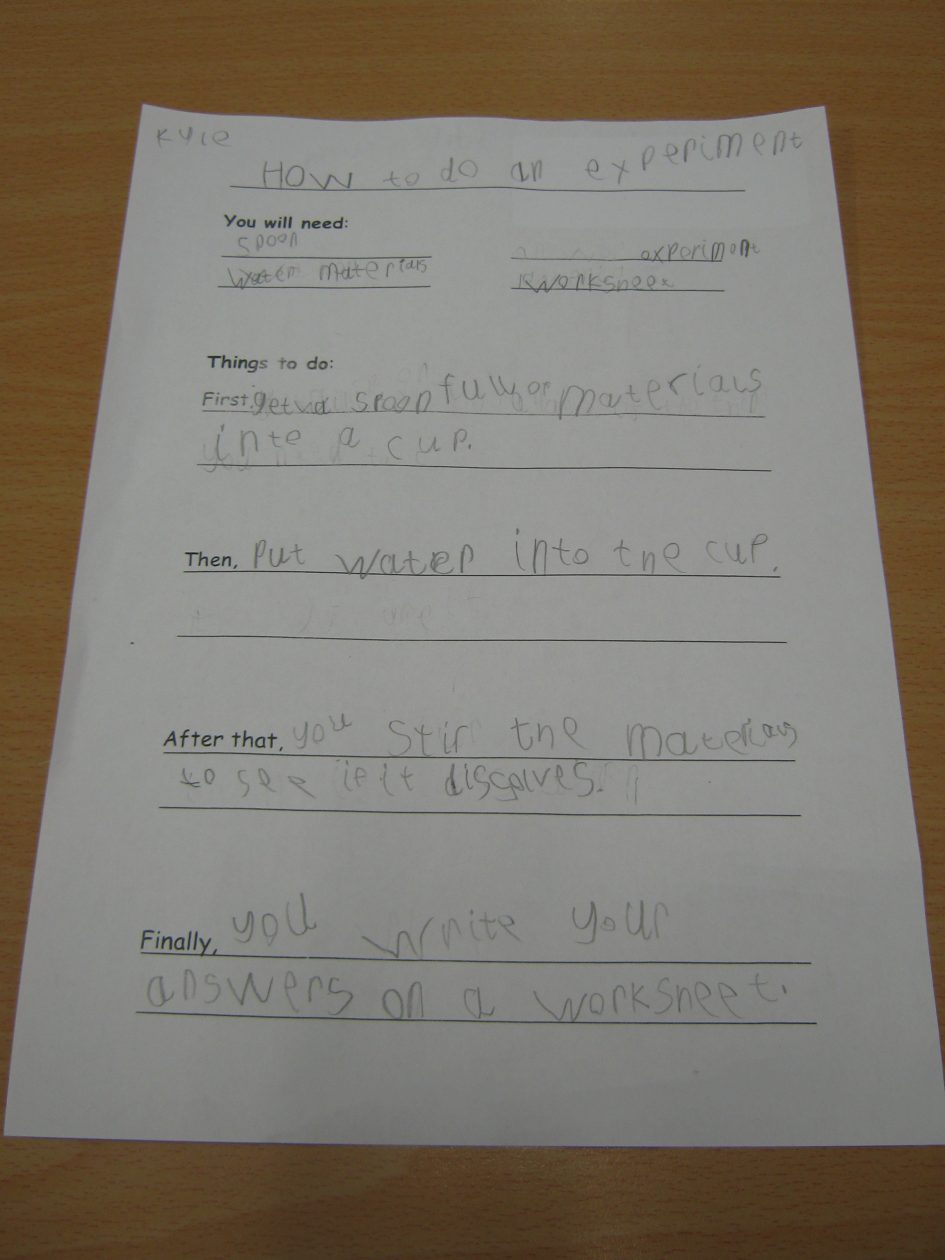 Kyle
How to do an experiment
You will need:
spoon
experiment
water materials
worksheet
Things to do:
First, get a spoon full of materials
into a cup.
Then, put water into the cup.
After that, you stir the materials
to see if it dissolves.
Finally, you write your
answers on a worksheet.